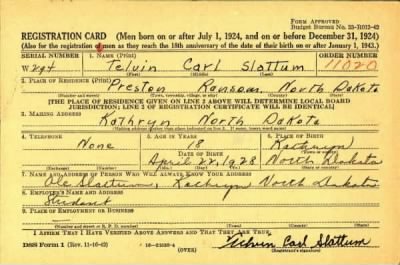 FORM APPROVED
BUDGET BUREAU NO. 33-R012-42
REGISTRATION CARD (Men born on or after July 1, 1924, and on or before December 31, 1924)
(Also for the registration of men as they reach the 18th anniversary of the date of their birth on or after January 1, 1943.)
SERIAL NUMBER 1. NAME (Print) ORDER NUMBER
W 294 Telvin Carl Slattum 11020
(First) (Middle) (Last)
2. PLACE OF RESIDENCE (Print)
Preston Ransom North Dakota
(Number and street) (Town, township, village, or city) (County) (State)
[THE PLACE OF RESIDENCE GIVEN ON LINE 2 ABOVE WILL DETERMINE LOCAL BOARD
JURISDICTION; LINE 2 OF REGISTRATION CERTIFICATE WILL BE IDENTICAL]
3. MAILING ADDRESS
Kathryn North Dakota
[Mailing address if other than place indicated on line 2. If same, insert word same]
4. TELEPHONE 5. AGE IN YEARS 6. PLACE OF BIRTH
None 18 Kathryn
DATE OF BIRTH (Town or county)
April 22, 1928 North Dakota
(Exchange) (Number) (Mo.) (Day) (Yr.) (State or country)
7. NAME AND ADDRESS OF PERSON WHO WILL ALWAYS KNOW YOUR ADDRESS
Ole Slattum, Kathryn North Dakota
8. EMPLOYER'S NAME AND ADDRESS
Student
9. PLACE OF EMPLOYMENT OR BUSINESS
(Number and street or R. F. D. number) (Town) (County) (State)
I AFFIRM THAT I HAVE VERIFIED ABOVE ANSWERS AND THAT THEY ARE TRUE.
DSS Form 1 (Rev. 11-16-42) (OVER) Telvin Carl Slattum
(Registrant's signature)